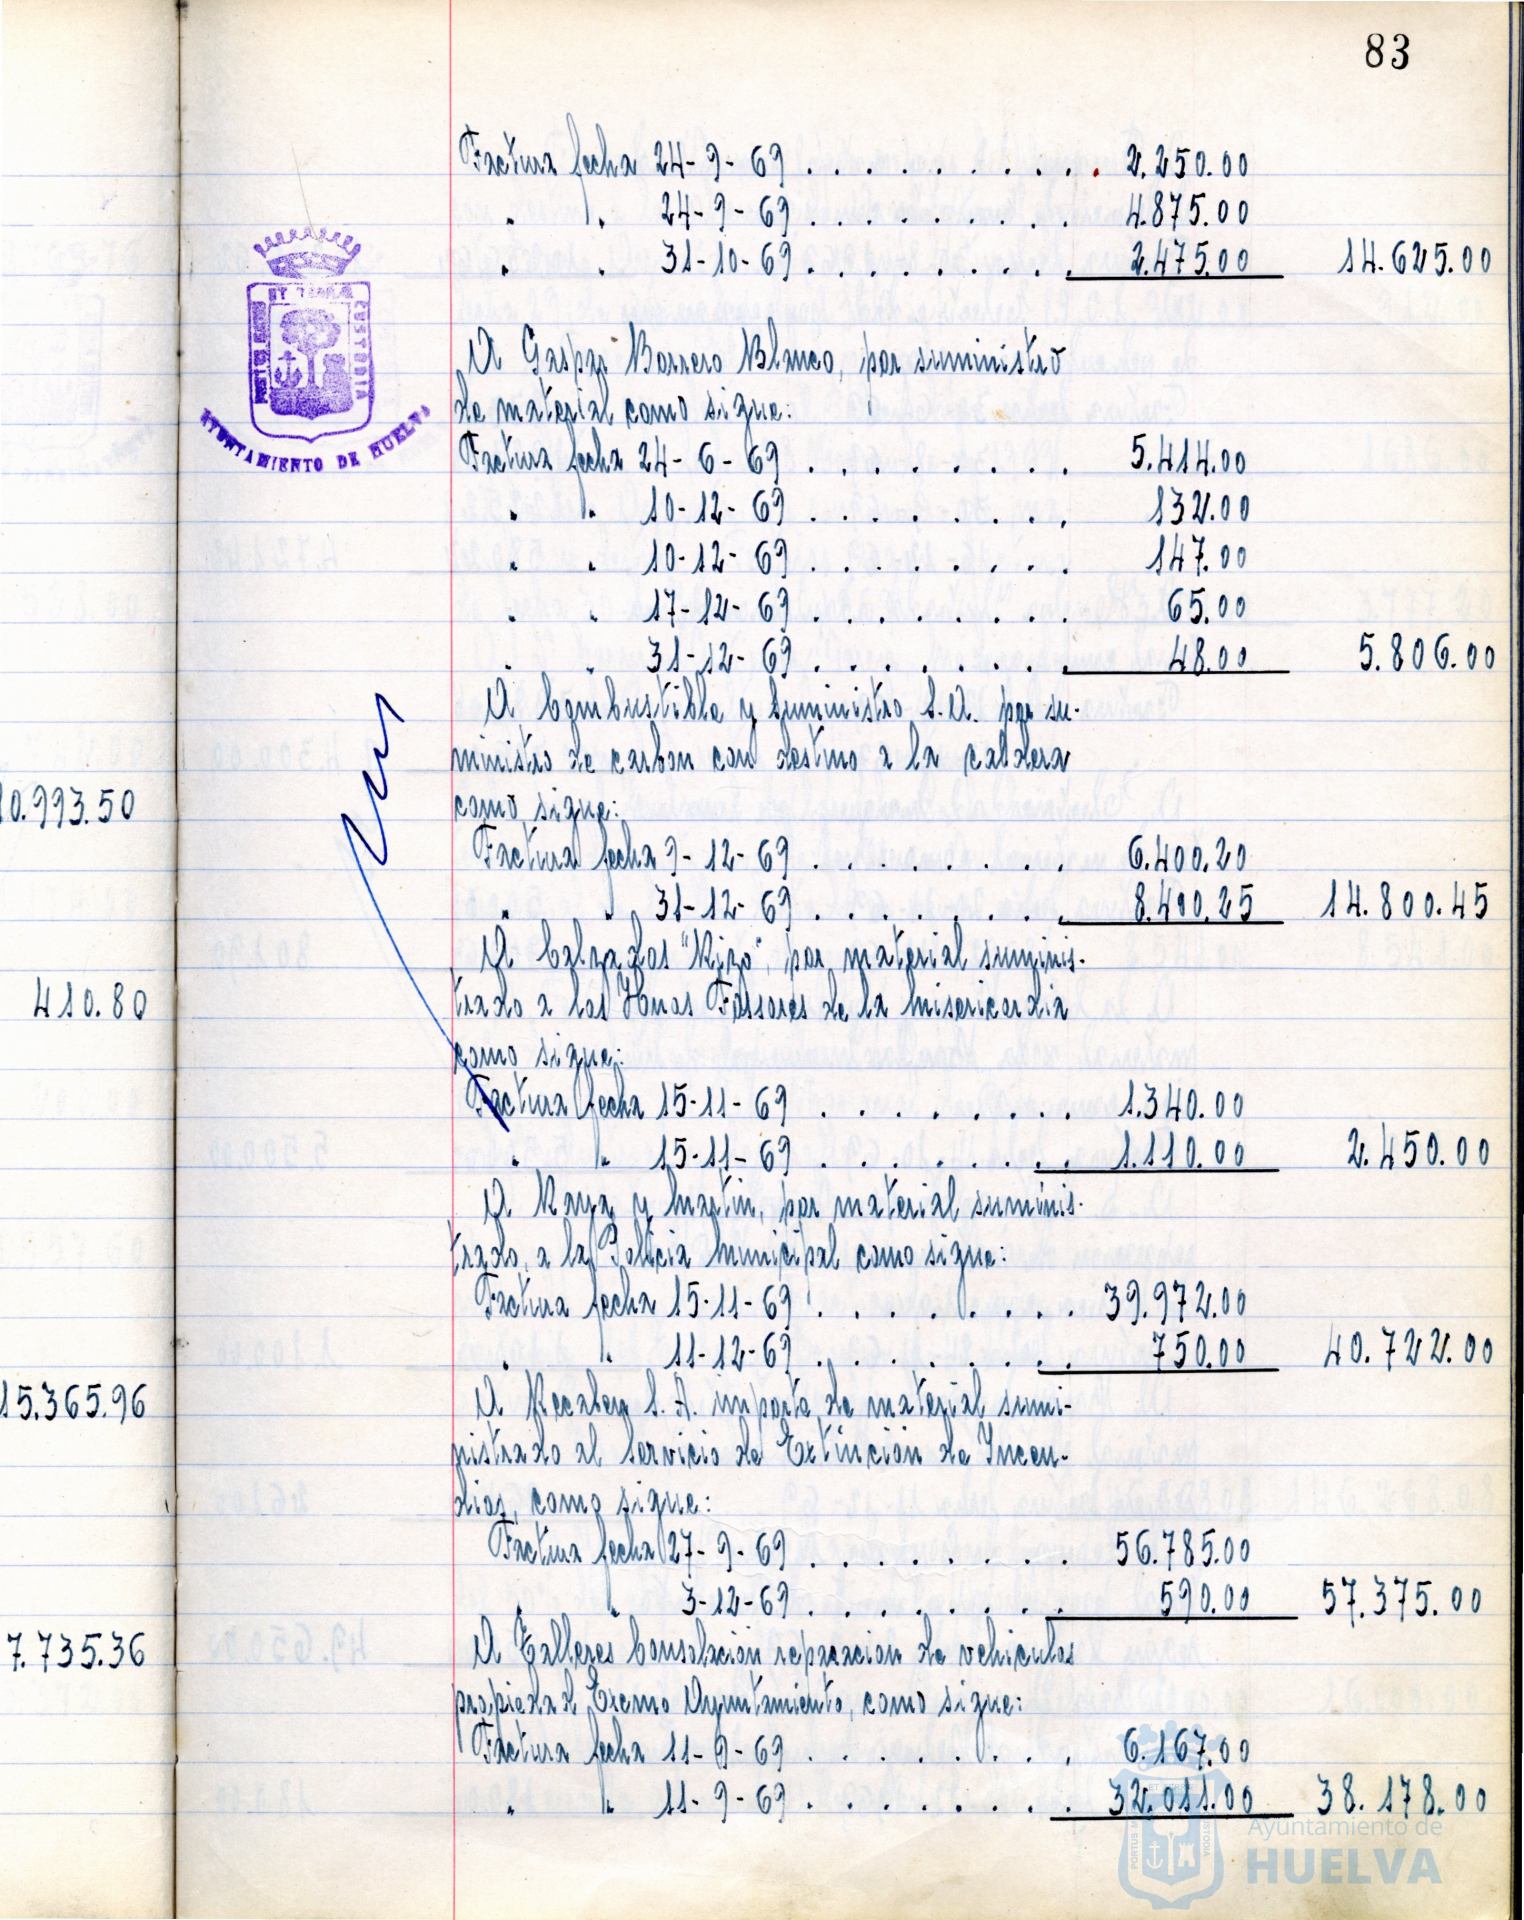 83
Factura fecha 24-9-69 . . . . . . . . . . 2.250.00
" " 24-9-69 . . . . . . . . . 4.875.00
" " 31-10-69 . . . . . . . . . 2.475.00 14.625.00
ET TERRÆ
PORTUS MARIS
CUSTODIA
AYUNTAMIENTO DE HUELVA
A Gaspar Borrero Blanco, por suministro
de material como sigue:
Factura fecha 24-6-69 . . . . . . . . 5.414.00
" " 10-12-69 . . . . . . . . 132.00
" " 10-12-69 . . . . . . . . 147.00
" " 17-12-69 . . . . . . . . 65.00
" " 31-12-69 . . . . . . . . 48.00 5.806.00
A Combustible y Suministro S.A. por su-
ministro de carbon con destino a la caldera
10.993.50
como sigue:
Factura fecha 9-12-69 . . . . . . . . 6.400.20
" " 31-12-69 . . . . . . . . 8.400.25 14.800.45
A Calzados "Rizo", por material suminis-
410.80
trado a los Hnos Fossores de la Misericordia
como sigue:
Factura fecha 15-11-69 . . . . . . . . 1.340.00
" " 15-11-69 . . . . . . . . 1.110.00 2.450.00
A Raya y Martin, por material suminis-
trado, a la Policia Municipal como sigue:
Factura fecha 15-11-69 . . . . . . . . 39.972.00
" " 11-12-69 . . . . . . . . 750.00 40.722.00
15.365.96
A S. A. importe de material sumi-
nistrado al Servicio de Extinción de Incen-
dios, como sigue:
Factura fecha 27-9-69 . . . . . . . . 56.785.00
" " 3-12-69 . . . . . . . . 590.00 57.375.00
7.735.36
A Talleres Consolación reparacion de vehiculos
propiedad Excmo Ayuntamiento, como sigue:
Factura fecha 11-9-69 . . . . . . . . 6.167.00
" " 11-9-69 . . . . . . . . 32.011.00 38.178.00
Ayuntamiento de
HUELVA